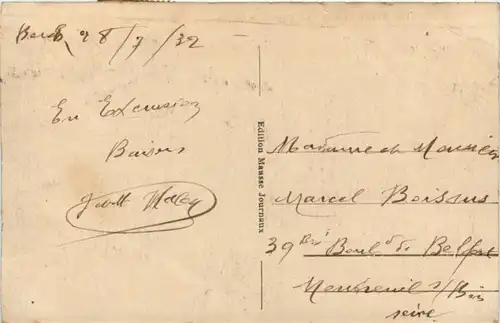 28/7/32
En Excursion
Baisers
Edition Mausse Journaux
Madame et Monsieur
Marcel Boisans
39 Bis Boul d de Belfort
Montreuil s/Bois
Seine